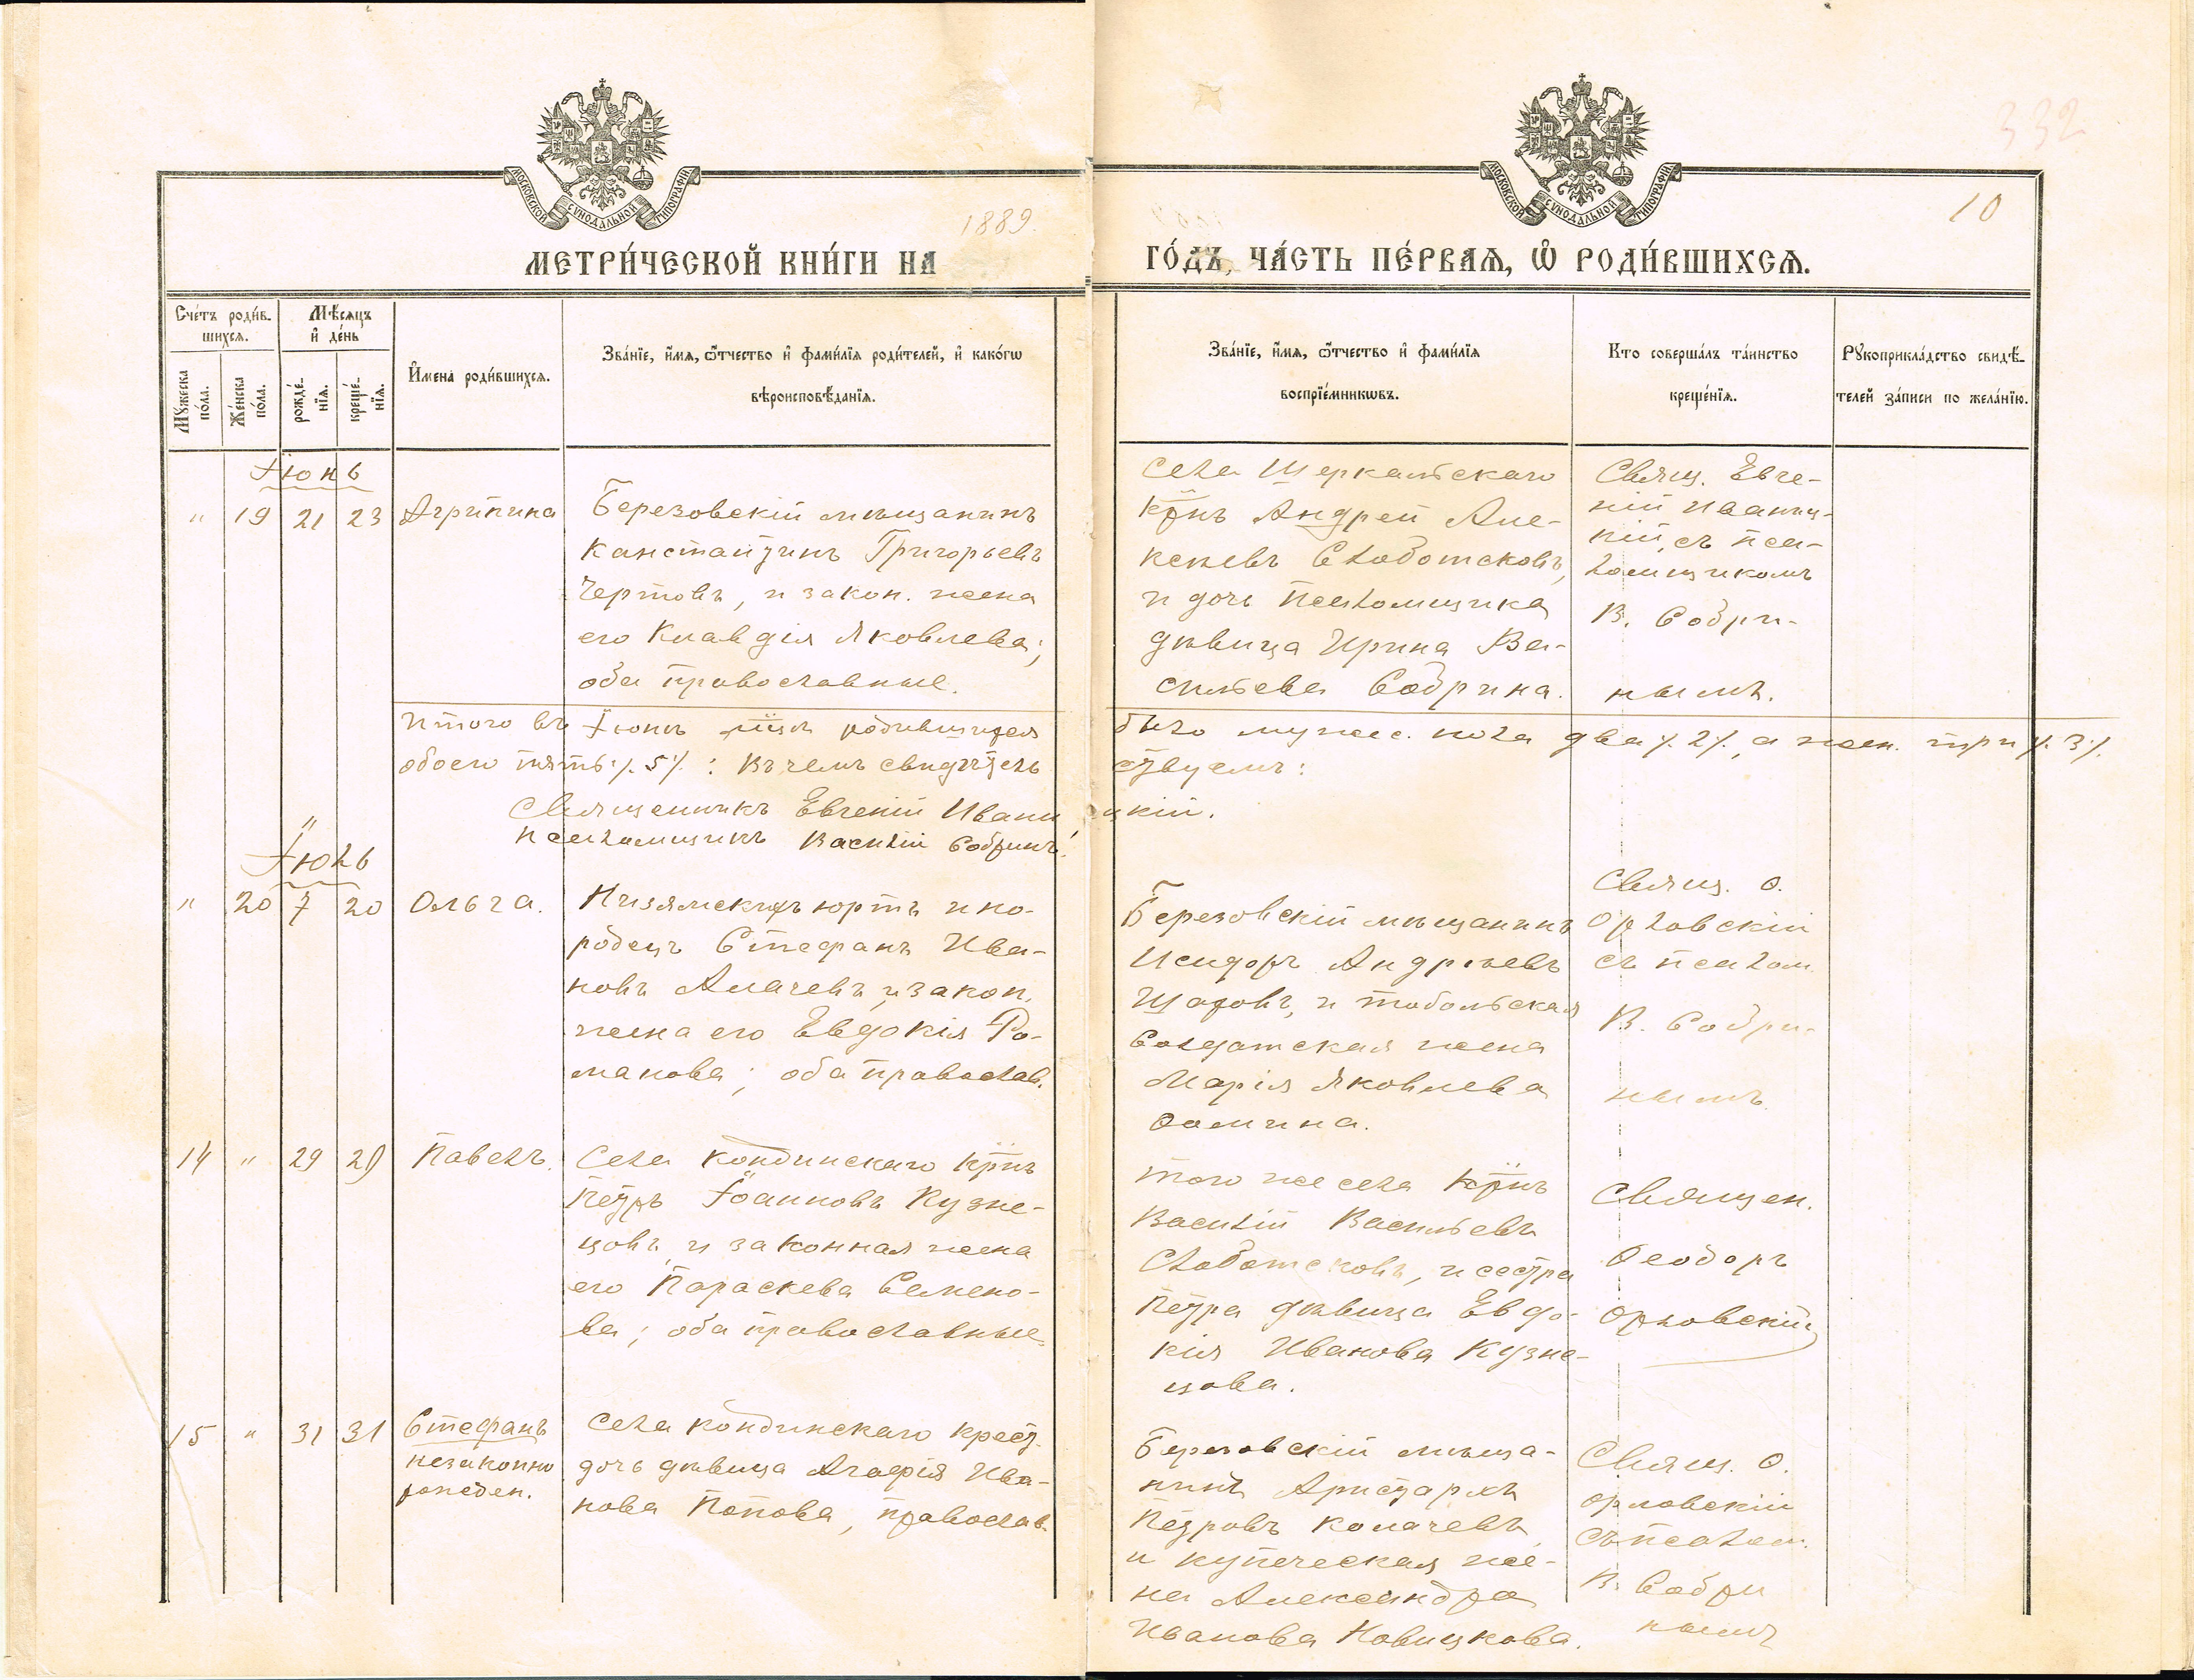 332
МОСКОВСКОЙ СѴНОДАЛЬНОЙ ТИПОГРАФІИ
МОСКОВСКОЙ СѴНОДАЛЬНОЙ ТИПОГРАФІИ
10
1889.
МЕТРИ́ЧЕСКОЙ КНИ́ГИ НА
ГО́ДЪ, ЧА́СТЬ ПЕ́РВАѦ, Ѽ РОДИ́ВШИХСѦ.
Сче́тъ роди́в-
шихсѧ.
Мѣ́сѧцъ
и҆ де́нь
Мꙋ́жеска
по́ла.
Же́нска
по́ла.
рожде́-
нїѧ.
креще́-
нїѧ.
И҆мена̀ роди́вшихсѧ.
Зва́нїе, и҆́мѧ, ѻ҆́тчество и҆ фами́лїѧ роди́телей, и҆ како́гѡ
вѣроисповѣ́данїѧ.
Зва́нїе, и҆́мѧ, ѻ҆́тчество и҆ фами́лїѧ
воспрїе́мникѡвъ.
Кто̀ соверша́лъ та́инство
креще́нїѧ.
Рꙋкоприкла́дство свидѣ́-
телей за́писи по жела́нїю.
Іюнь
" 19 21 23 Агрипина
Березовскій мѣщанинъ
Канстантинъ Григорьевъ
Чертовъ, и закон. жена
его Клавдія Яковлева;
оба православные.
села Шеркальскаго
Крнъ Андрей Але-
ксѣевъ Слободсковъ,
и дочь псаломщика
дѣвица Ирина Ва-
сильева Собрина.
Свящ. Евге-
ній Иваниц-
кій, съ пса-
ломщикомъ
В. Собри-
нымъ.
Итого въ Іюнѣ мцѣ родившихся
было мужес. пола два ·/. 2 ·/., а жен. три ·/. 3 ·/.
обоего пять ·/. 5 ·/. : Въ чемъ свидѣтель
ствуемъ:
Священникъ Евгеній Иваницкій.
псаломщикъ Василій Собринъ.
Іюль
" 20 7 20 Ольга.
Низямскихъ юртъ ино-
родецъ Стефанъ Ива-
новъ Алачевъ, и закон.
жена его Евдокія Ро-
манова; оба православ.
Березовскій мѣщанинъ
Исидоръ Андреевъ
Шаховъ, и тобольская
Солдатская жена
Марія Яковлева
Ѳомина.
Свящ. Ѳ.
Орловскій
съ псалом.
В. Собри-
нымъ
14 " 29 29 Павелъ.
Села Кондинскаго Крнъ
Петръ Іоанновъ Кузне-
цовъ, и законная жена
его Параскева Семено-
ва; оба православные
того же села Крнъ
Василій Васильевъ
Слободсковъ, и сестра
Петра дѣвица Евдо-
кія Иванова Кузне-
цова.
Священ.
Ѳеодоръ
Орловскій
15 " 31 31 Стефанъ
незаконно
рожден.
Села Кондинскаго крест.
дочь дѣвица Агафія Ива-
нова Попова, православ.
Березовскій мѣща-
нинъ Аристархъ
Петровъ Колачевъ
и купеческая же-
на Александра
Иванова Новицкова.
Свящ. Ѳ.
Орловскій
съ псалом.
В. Собри
нымъ